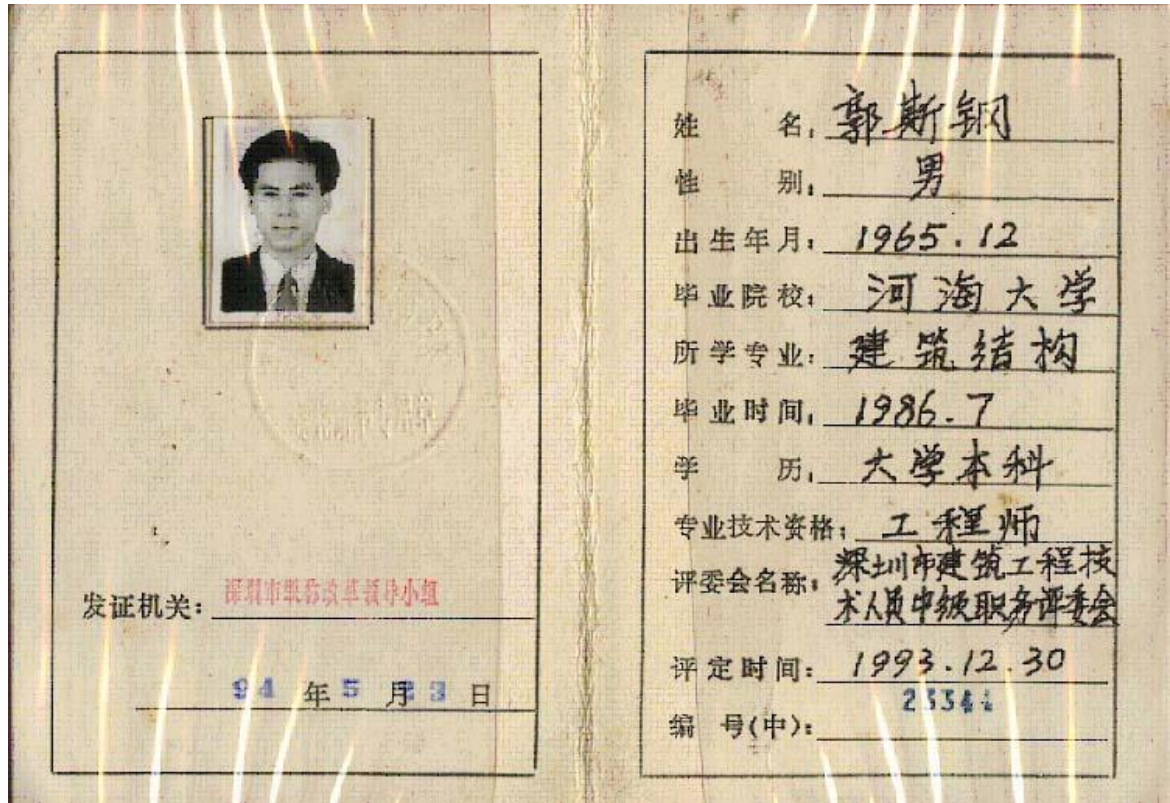 发证机关：深圳市职称改革领导小组
94年5月23日
姓名：郭斯钢
性别：男
出生年月：1965.12
毕业院校：河海大学
所学专业：建筑结构
毕业时间：1986.7
学历：大学本科
专业技术资格：工程师
评委会名称：深圳市建筑工程技
术人员中级职务评委会
评定时间：1993.12.30
编号(中)：